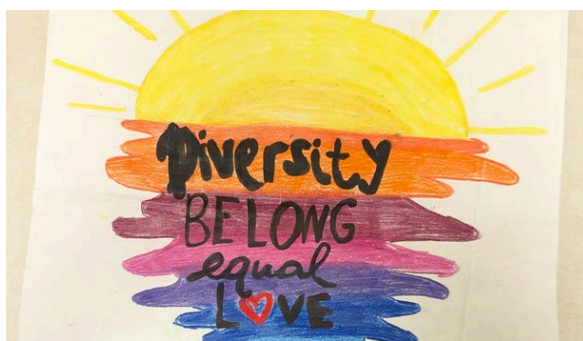 Diversity
BELONG
equal
L♥VE